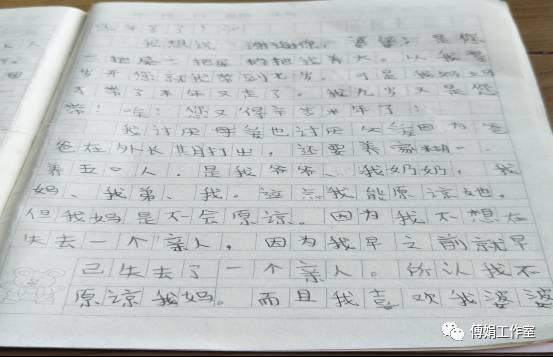 我想说：谢谢你，婆婆！是您
一把屎一把尿的把我养大。从我
岁开您就我带到七岁。可是我妈妈
才带了半年又走了。我九岁又是您
带！唉！您又得辛苦半年了！
我讨厌母爱也讨厌父爱因为爸
爸在外长期打工，还要养家糊口
养五口人，是我爷爷、我奶奶，我
妈、我弟、我。这点我能原谅她。
但我妈是不会原谅。因为我不想在
失去一个亲人，因为我早之前就早
己失去了一个亲人。所认我不
原谅我妈。而且我喜欢我婆婆
傅娟工作室